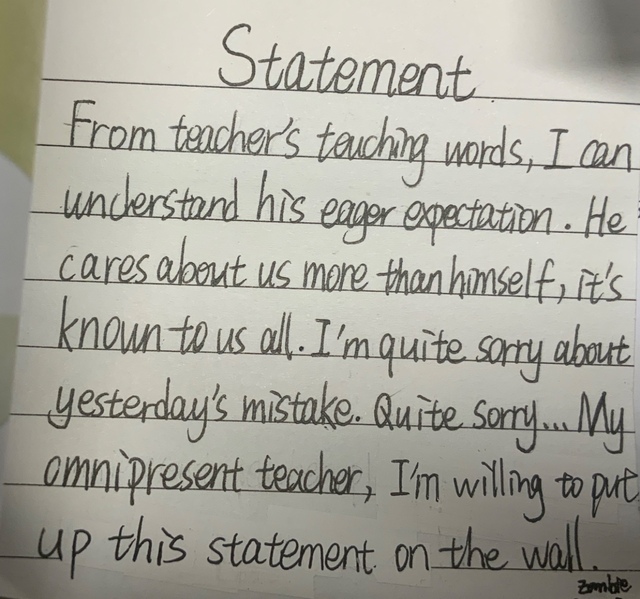 Statement
From teacher's teaching words, I can
understand his eager expectation. He
cares about us more than himself, it's
known to us all. I'm quite sorry about
yesterday's mistake. Quite sorry... My
omnipresent teacher, I'm willing to put
up this statement on the wall.
Zombie